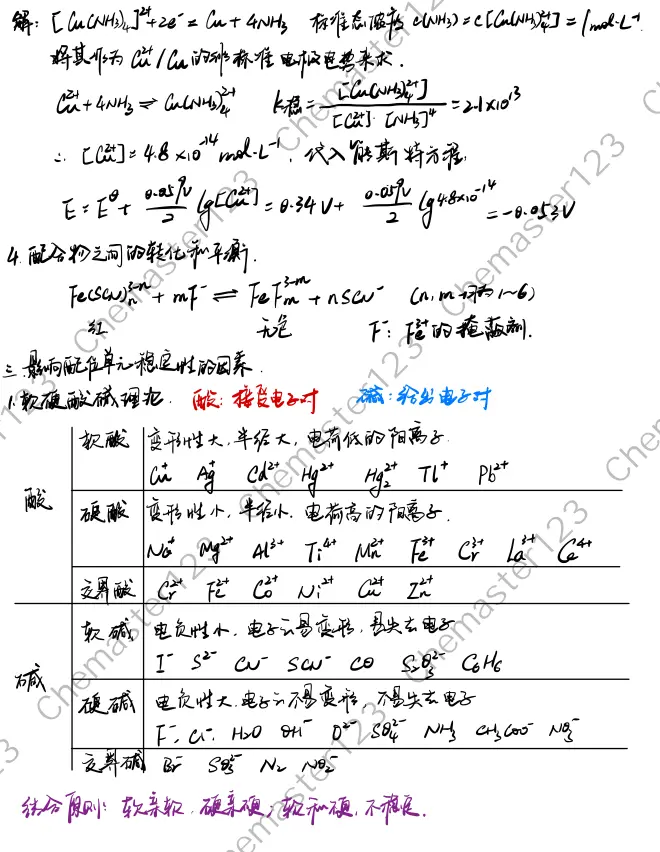 解: [Cu(NH₃)₄]²⁺+2e⁻=Cu+4NH₃ 标准态破救 c(NH₃)=c[Cu(NH₃)₄²⁺]=1mol·L⁻¹
将其作为Cu²⁺/Cu的非标准电极电势来求.
Cu²⁺+4NH₃⇌Cu(NH₃)₄²⁺ K稳=[Cu(NH₃)₄²⁺]/([Cu²⁺]·[NH₃]⁴)=2.1×10¹³
∴[Cu²⁺]=4.8×10⁻¹⁴mol·L⁻¹, 代入能斯特方程,
E=E^θ+0.059V/2 lg[Cu²⁺]=0.34V+0.059V/2 lg4.8×10⁻¹⁴=-0.053V
4.配合物之间的转化和平衡.
Fe(SCN)ₙ³⁻ⁿ+mF⁻⇌FeFₘ³⁻ᵐ+nSCN⁻ (n,m均为1~6)
红 无色 F⁻:Fe³⁺的掩蔽剂.
三.影响配位单元稳定性的因素.
1.软硬酸碱理论. 酸:接受电子对 碱:给出电子对
酸
软酸 变形性大,半径大,电荷低的阳离子.
Cu⁺ Ag⁺ Cd²⁺ Hg²⁺ Hg₂²⁺ Tl⁺ Pb²⁺
硬酸 变形性小,半径小.电荷高的阳离子.
Na⁺ Mg²⁺ Al³⁺ Ti⁴⁺ Mn²⁺ Fe³⁺ Cr³⁺ La³⁺ Ce⁴⁺
交界酸 Cr²⁺ Fe²⁺ Co²⁺ Ni²⁺ Cu²⁺ Zn²⁺
碱
软碱 电负性小,电子云易变形,易失去电子
I⁻ S²⁻ CN⁻ SCN⁻ CO S₂O₃²⁻ C₆H₆
硬碱 电负性大.电子云不易变形,不易失去电子
F⁻, Cl⁻, H₂O OH⁻ O²⁻ SO₄²⁻ NH₃ CH₃COO⁻ NO₃⁻
交界碱 Br⁻ SO₃²⁻ N₂ NO₂⁻
结合原则:软亲软,硬亲硬;软和硬,不稳定.
Chemaster123